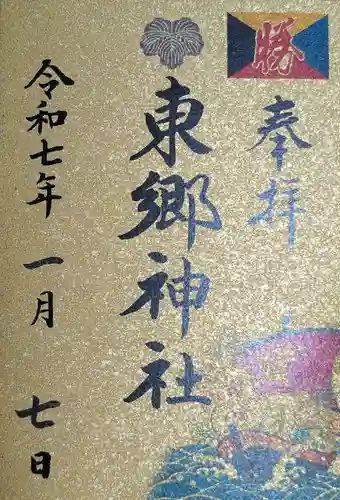 勝
奉拝
東郷神社
令和七年一月七日